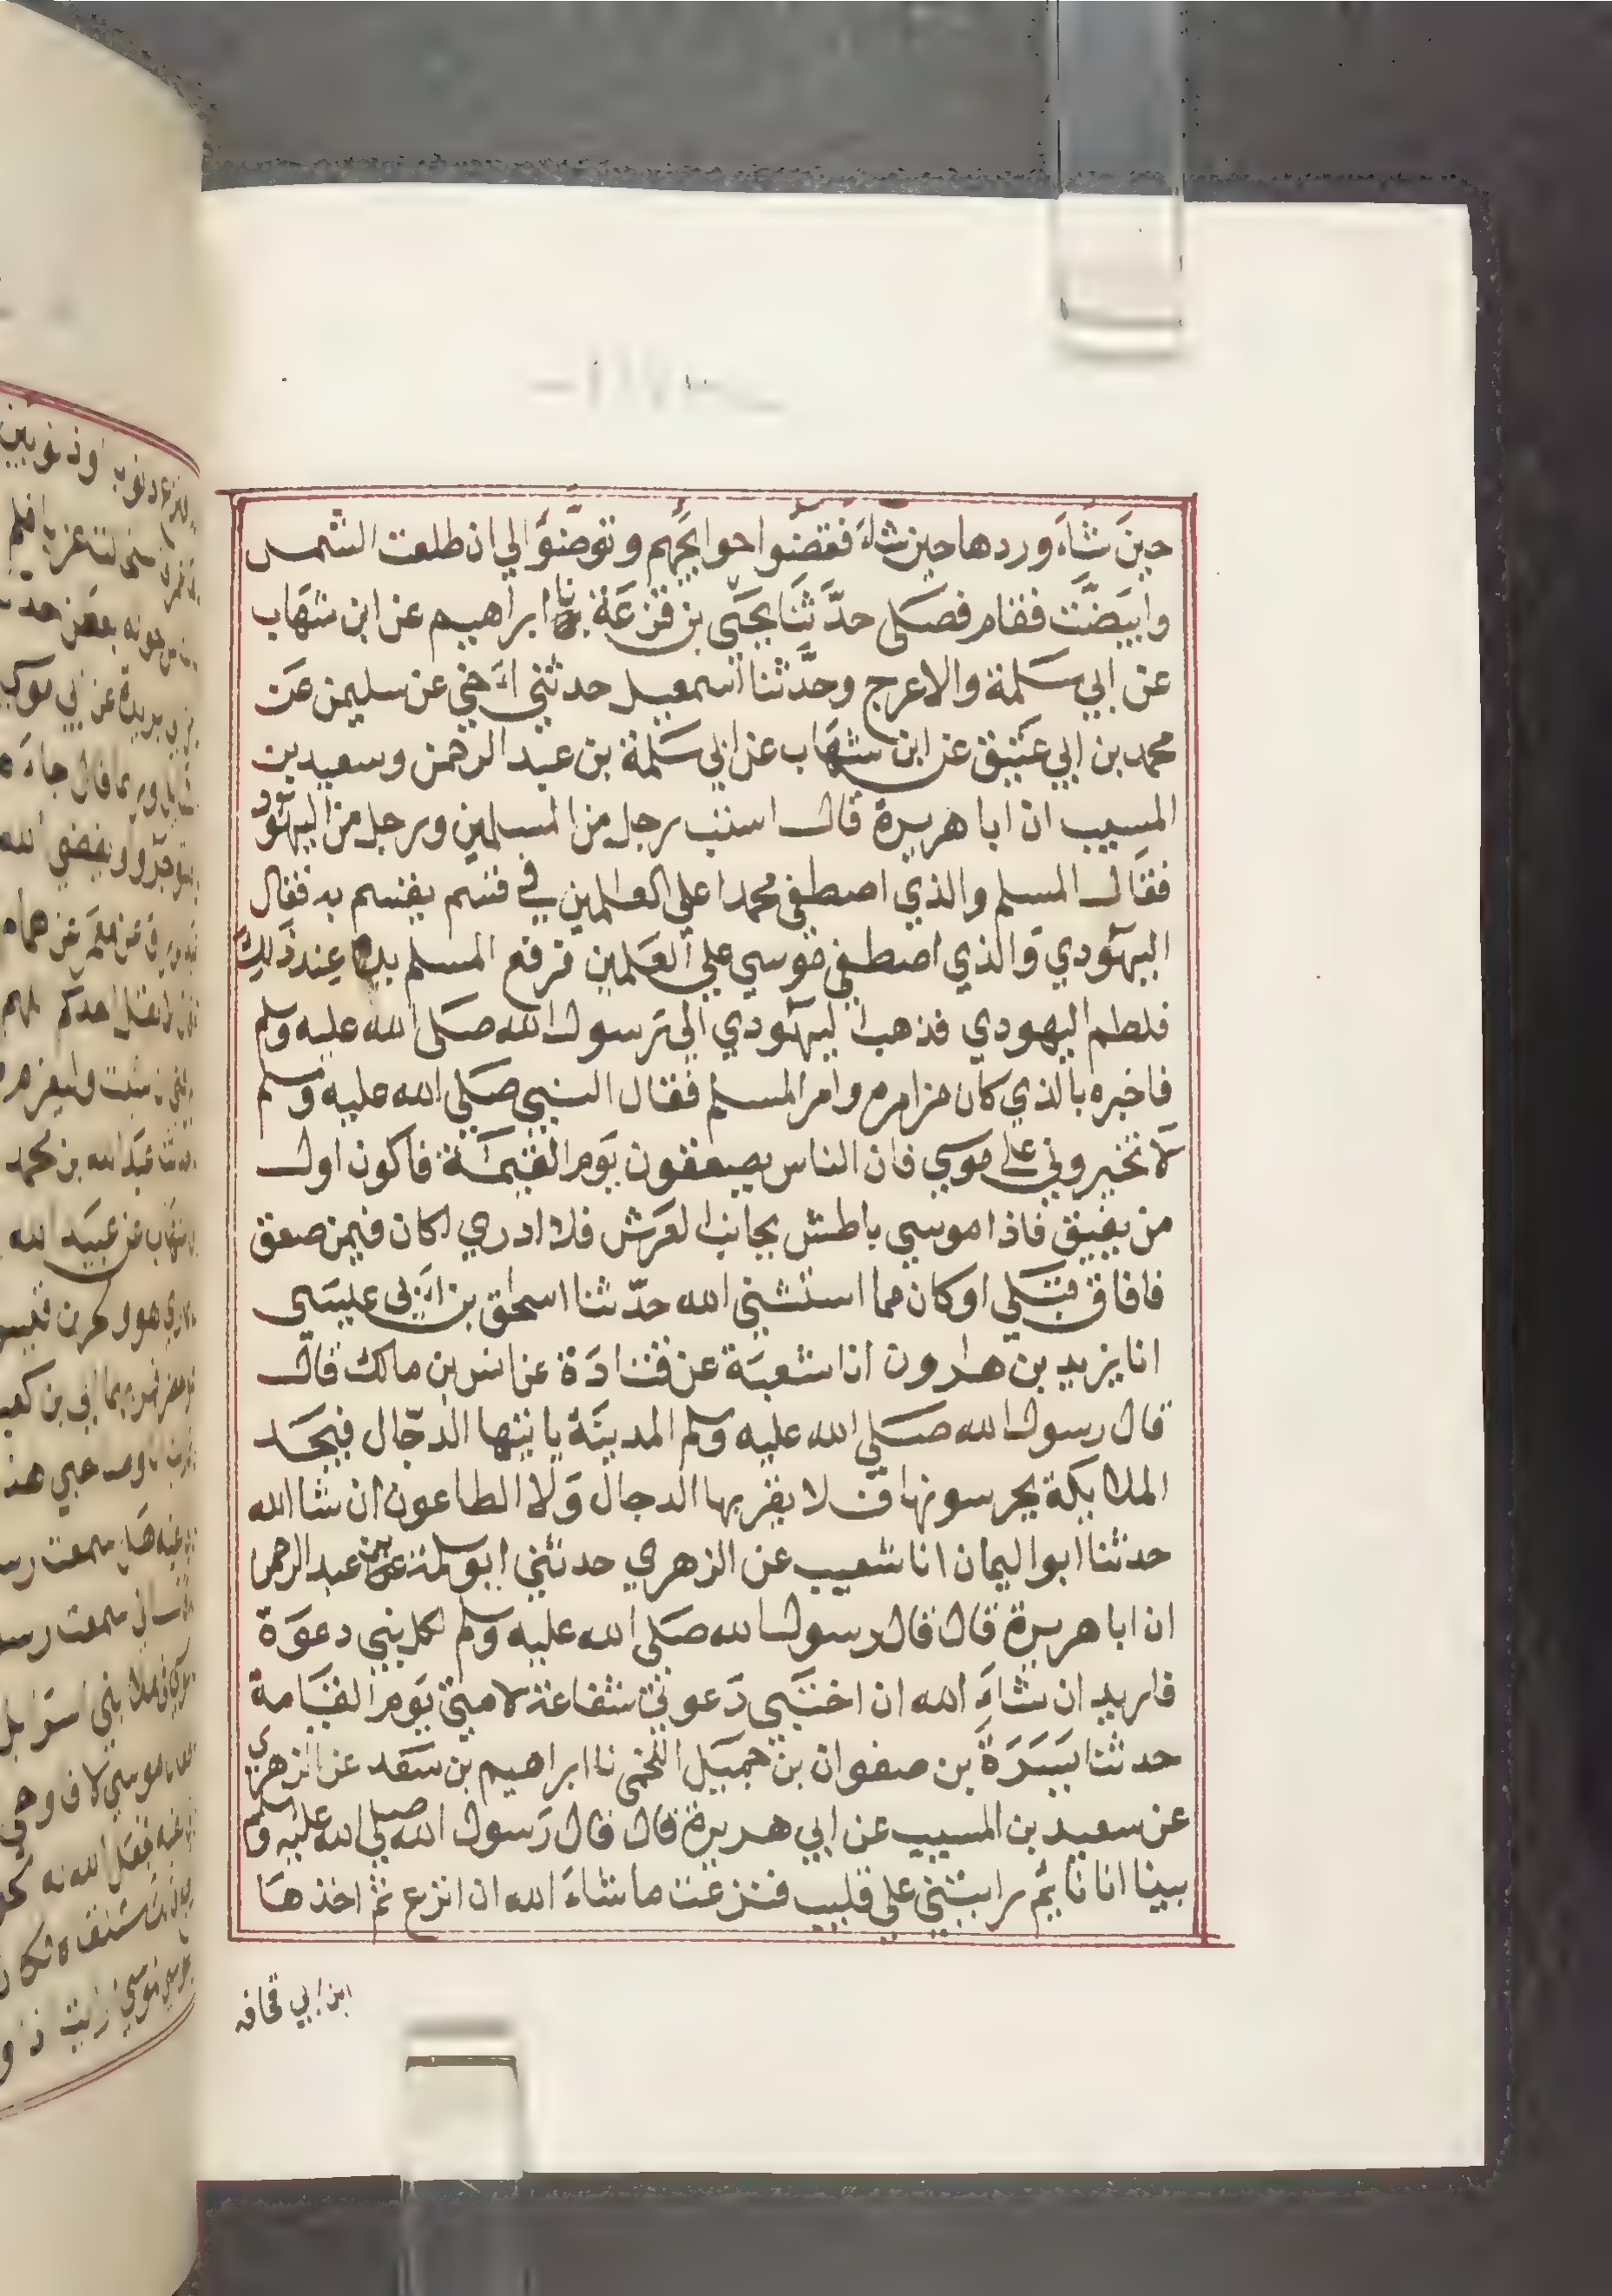 حينَ شَاءَ وردها حين شاءَ فقضَوا حوايجَهم وتوضَّوا الي ان طلعت الشمس
وابيَضَّت فقام فصَلى حدَّثنَا يحيَى بن قزعَة نا ابراهيم عن ابن شهَاب
عن ابي سَلمة والاعرج وحدَّثنا اسمعيل حدثني اَخي عن سليمن عن
محمد بن ابي عَتيق عن ابن شهَاب عن ابي سَلمة بن عبد الرحمن وسعيد بن
المسيب ان ابا هريرة قال استب رجل من المسلمين ورجل من اليهُود
فقَال المسلم والذي اصطفى محمدا علي العالمين في قسم يقسم به فقال
اليهُودي وَالذي اصطفى موسي علي العَلمين فرفع المسلم يده عند ذَلك
فلطم اليهودي فذهب اليهُودي الى رسول الله صَلى الله عليه وسلم
فاخبره بالذي كان من امره وامر المسلم فقال النبي صَلي الله عليه وسلم
لَا تخيروني على موسي فان الناس يصعقون يَوم القيمَة فاكون اول
من يفيق فاذا موسي باطش بجانب العَرش فلا ادري اكان فيمن صعق
فافاق قبَلي او كان مما استثنى الله حدّثنا اسحاق بن اَبي عيسَى
انا يزيد بن هارون انا شعبَة عن قتادَة عن انس بن مالك قال
قال رسول الله صَلي الله عليه وسلم المدينَة ياتيها الدجّال فيجَد
الملايكة يحرسونها فلا يقربها الدجال وَلا الطاعون ان شا الله
حدثنا ابو اليمان انا شعيب عن الزهري حدثني ابو سلمة بن عبد الرحمن
ان ابا هريرة قال قال رسول الله صَلى الله عليه وسلم لكل نبي دعوَة
فاريد ان شاءَ الله ان اختَبي دَعوتي شفاعة لامتي يَوم القيَامة
حدثنا يَسَرَةَ بن صفوان بن جميَل اللخمى نا ابراهيم بن سَعَد عن الزهري
عن سعيد بن المسيب عن ابي هريرة قال قال رَسول الله صلى الله عليه وسلم
بينا انا نايم رايتني على قليب فنزعت ما شاءَ الله ان انزع ثم اخذهَا
ابن ابي قحافه